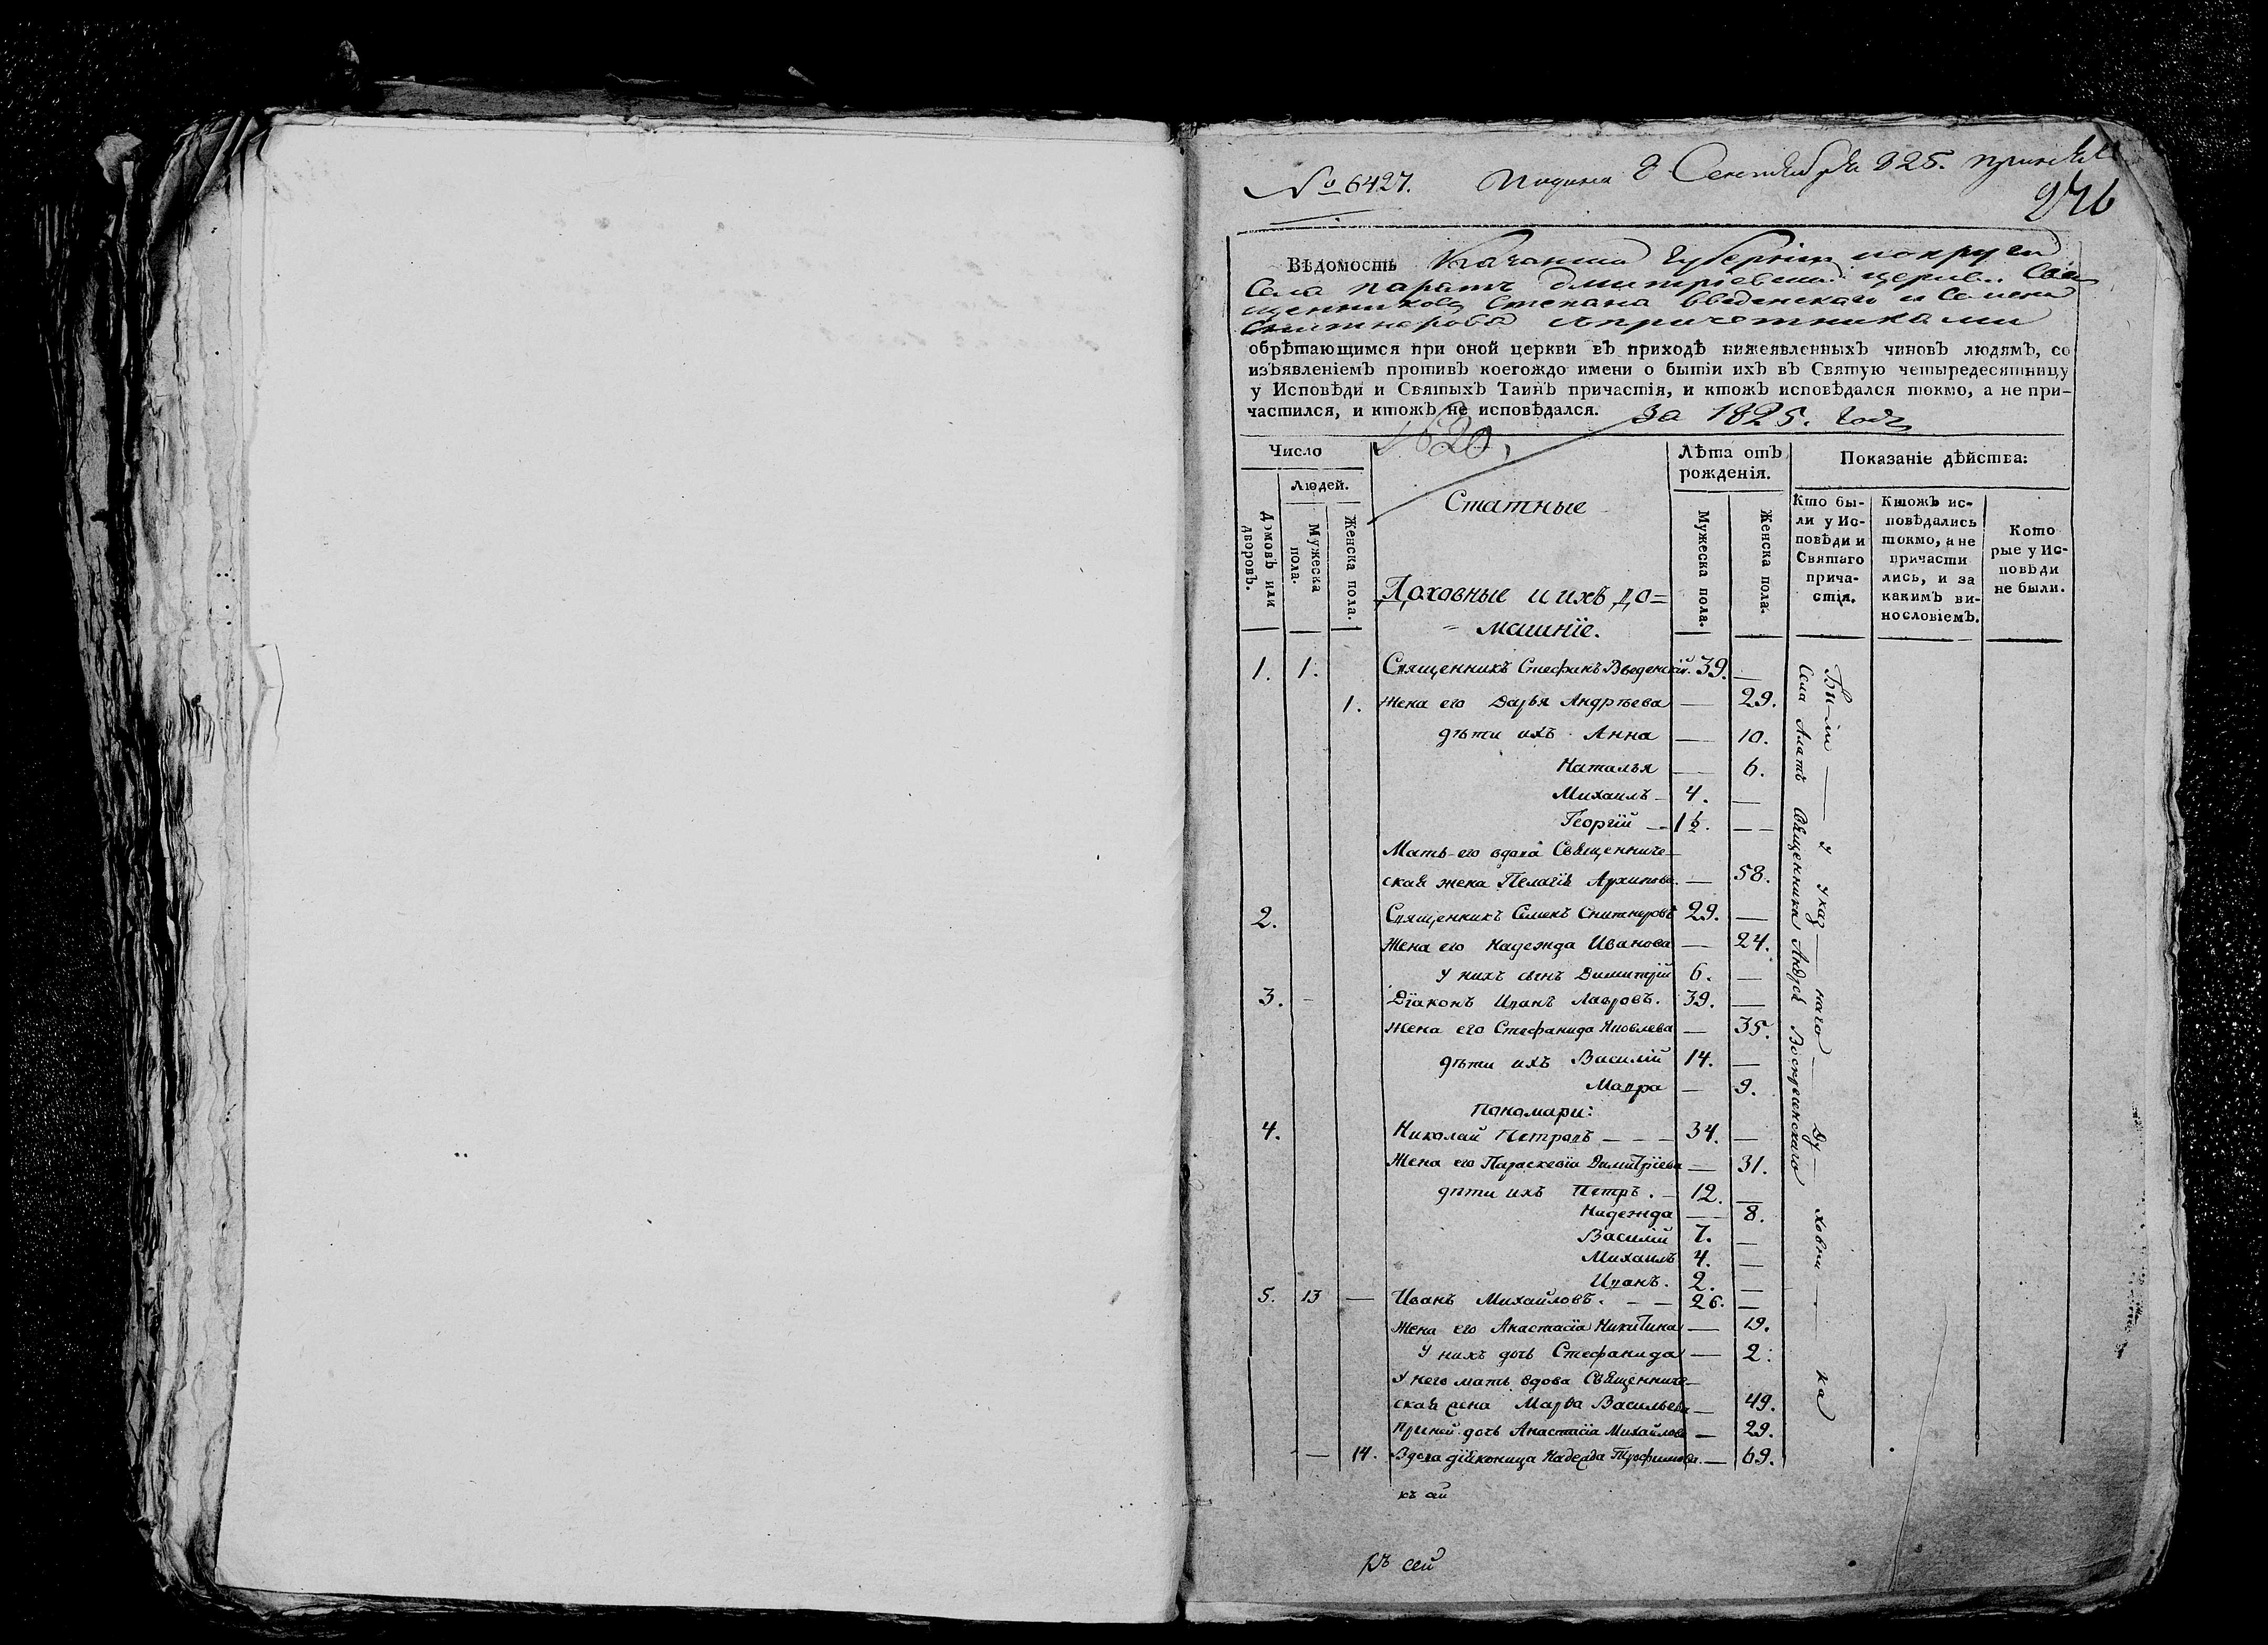 № 6427. Подана 8 Сентября 825.
276
Вѣдомость Казанской Губернии
Села Паратъ Дмитріевской церкви Свя
щенниковъ Степана Введенскаго и Семена
Смитнерова с причетниками
обрѣтающимся при оной церкви въ приходѣ нижеявленныхъ чиновъ людямъ, со
изъявленіемъ противъ коегождо имени о бытіи ихъ въ Святую четыредесятницу
у Исповѣди и Святыхъ Таинъ причастія, и ктожъ исповѣдался токмо, а не при-
частился, и ктожъ не исповѣдался. За 1825. годъ
Число
Людей.
Домовъ или дворовъ.
Мужеска пола.
Женска пола.
Статные
Духовные и ихъ до=
машніе.
Лѣта отъ
рожденія.
Мужеска пола.
Женска пола.
Показаніе дѣйства:
Кто бы-
ли у Ис-
повѣди и
Святаго
прича-
стія.
Ктожъ ис-
повѣдались
токмо, а не
причасти
лись, и за
какимъ ви-
нословіемъ.
Кото
рые у Ис-
повѣди
не были.
1. 1. Священникъ Стефанъ Введенскій. 39. —
1. Жена его Дарья Андрѣева — 29.
дѣти ихъ Анна — 10.
Наталья — 6.
Михаилъ — 4. —
Георгій — 1½. — —
Мать его вдова Священниче-
ская жена Пелагія Архипова. — 58.
2. Священникъ Семенъ Смитнеровъ 29. —
Жена его Надежда Иванова — 24.
у нихъ сынъ Димитрій 6. —
3. - Діаконъ Иванъ Лавровъ. 39. —
Жена его Стефанида Яковлева — 35.
дѣти ихъ Василій 14. —
Мавра — 9.
Пономари:
4. Николай Петровъ — — — 34. —
Жена его Параскевія Димитріева — 31.
дѣти ихъ Петръ. — 12. —
Надежда — 8.
Василій 7. —
Михаилъ 4. —
Иванъ. 2. —
5. 13 — Иванъ Михайловъ. — — 26. —
Жена его Анастасія Никитина — 19.
У нихъ дочь Стефанида — 2.
У него мать вдова Священниче-
ская жена Марѳа Васильева — 49.
При ней дочь Анастасія Михайлова — 29.
— 14. Вдова діяконица Надежда Трофимова. — 69.
Были — у указ — наго — Ду — ховни — ка
Села Алатъ Священника Андрея Воскресенскаго
къ сей